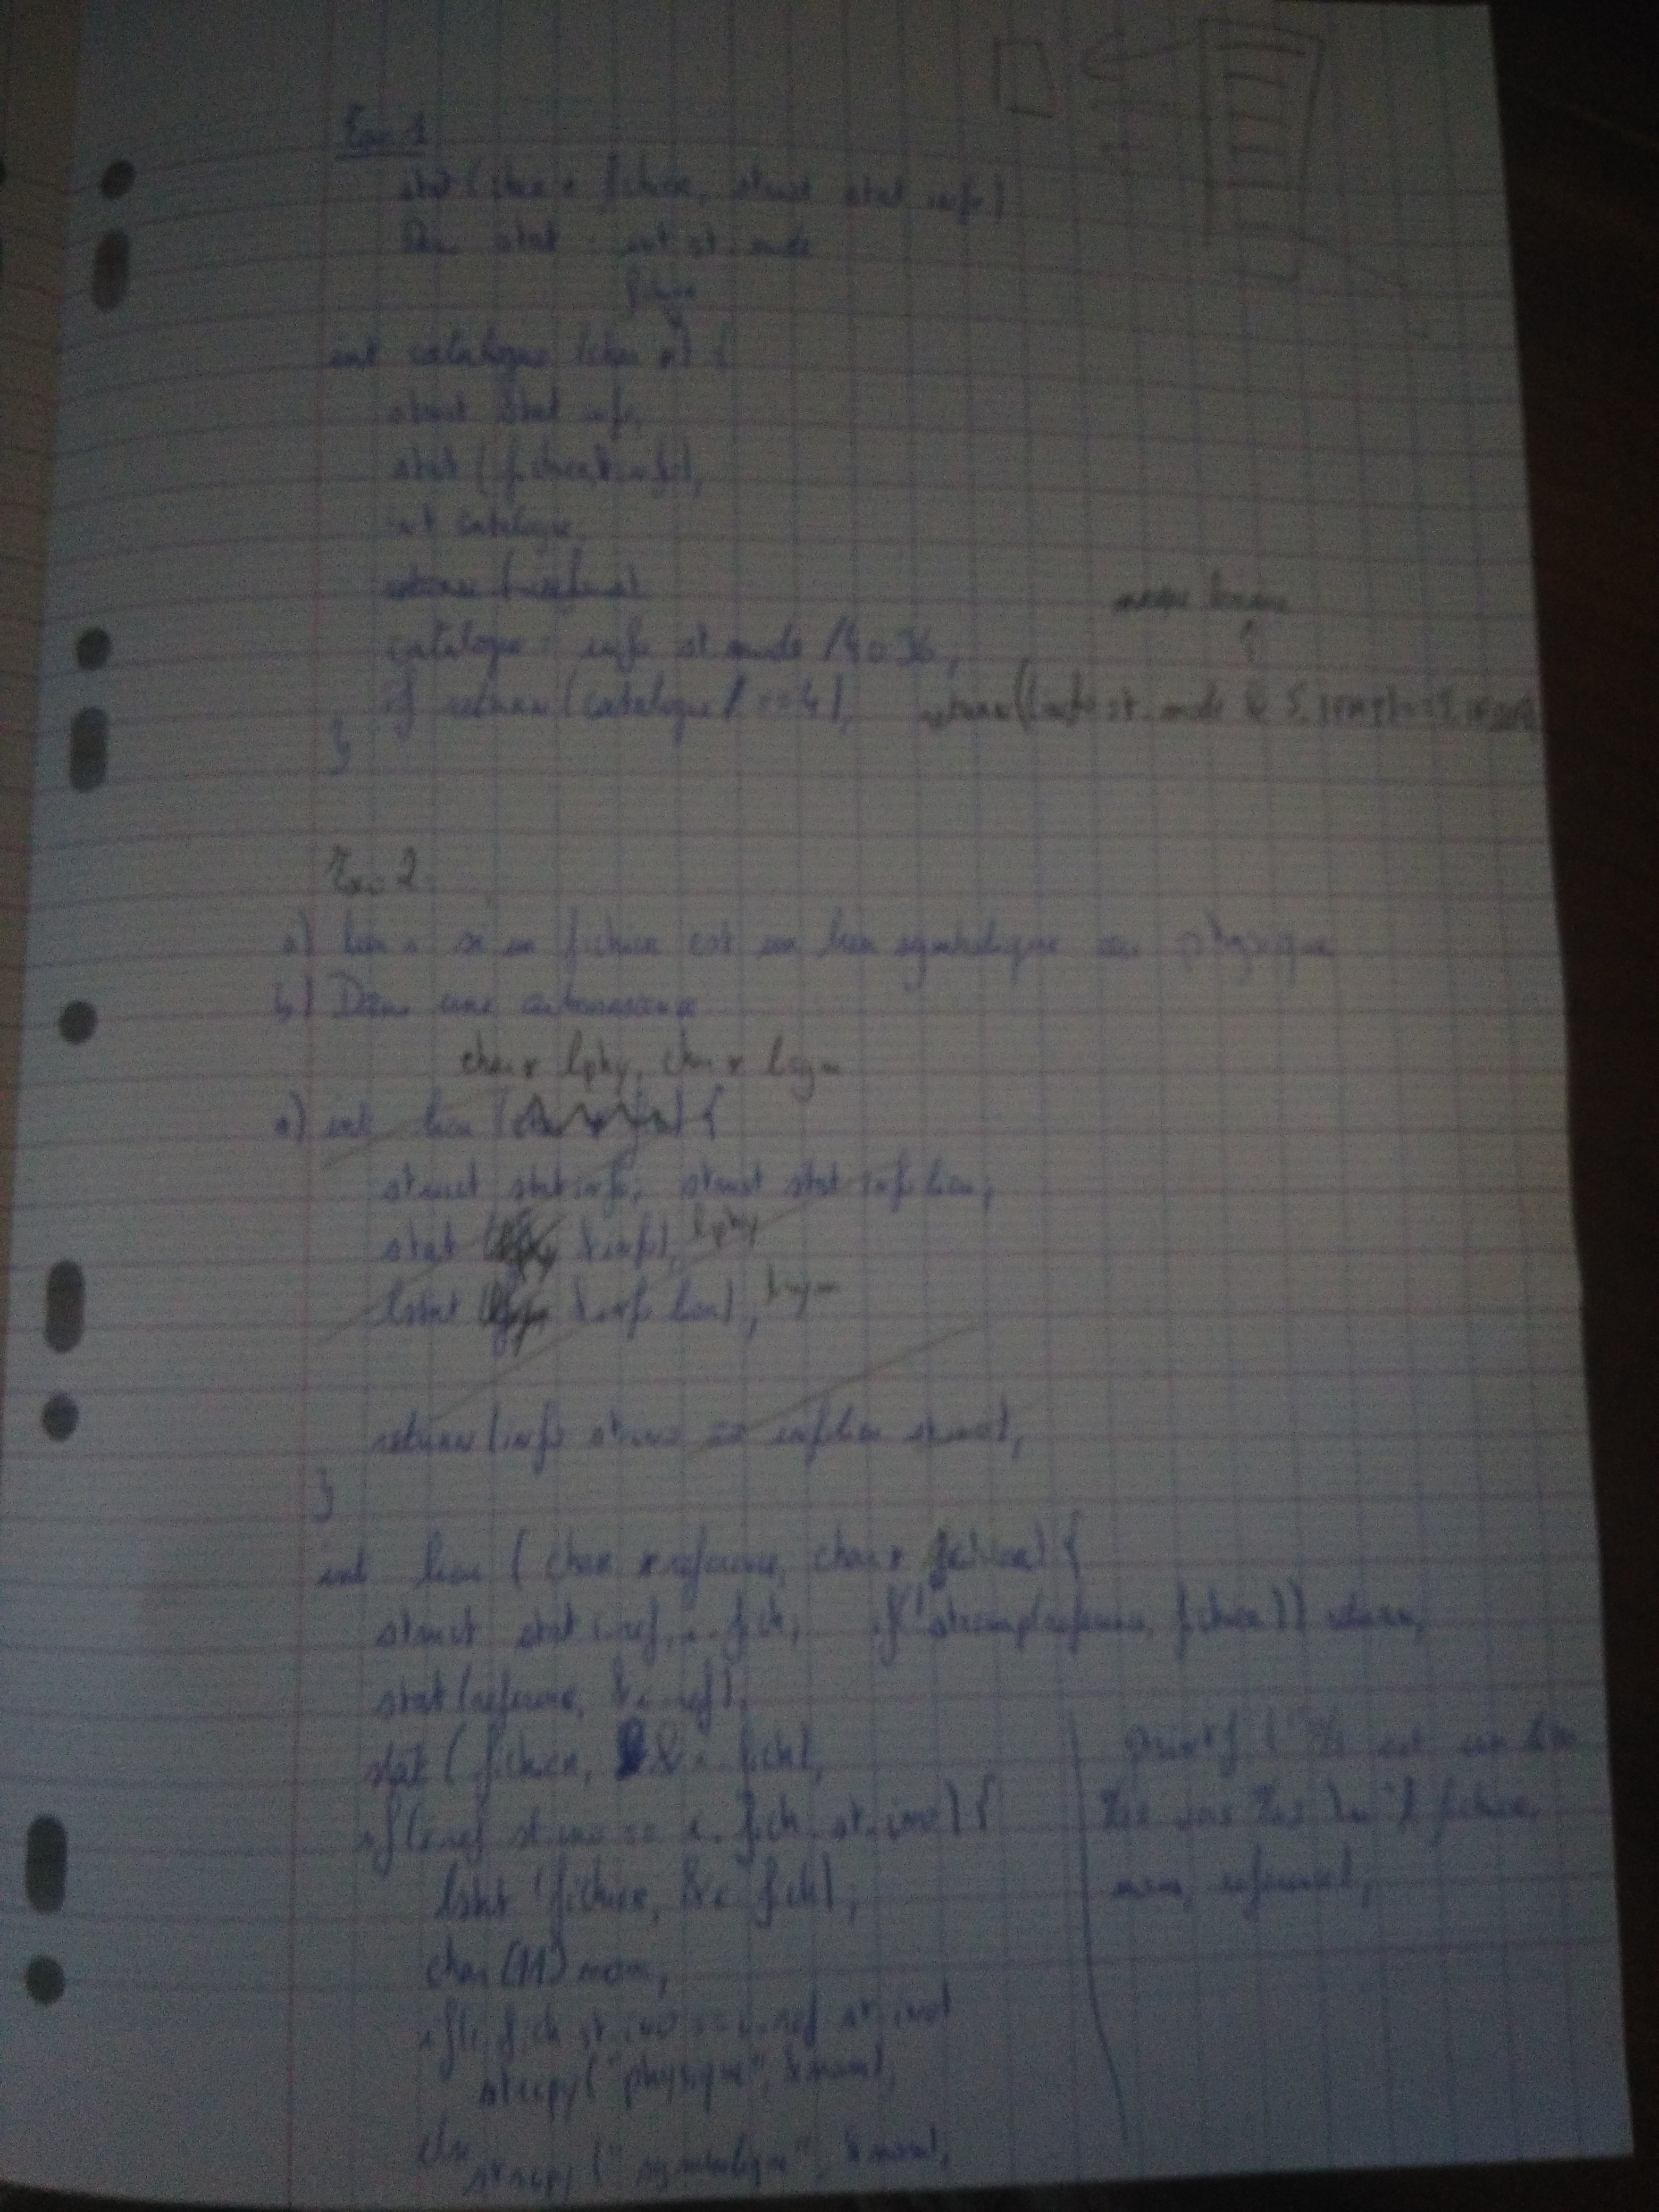 Exo 1
stat (char * fichier, struct stat info)
Dans stat : int st_mode
fichier
int catalogue (char *) {
struct stat info;
stat (fichier, &info);
int catalogue;
catalogue = info.st_mode / 4096;
if return (catalogue == 4);
return((info.st_mode & S_IFMT) ==
}
Exo 2
a) lien : si un fichier est un lien symbolique ou physique
b) Dans une
char * lphy, char * lsym
a) int lien ( ) {
struct stat info; struct stat infolien;
stat ( &info); lphy
lstat ( &infolien); lsym
return (info.st_ino == infolien.st_ino);
}
int lien (char *reference, char * fichier) {
struct stat i_ref, i_fich; if(!strcmp(reference, fichier)) return;
stat (reference, &i_ref);
stat (fichier, &i_fich);
if(i_ref.st_ino == i_fich.st_ino) {
lstat (fichier, &i_fich);
char (11) nom;
if(i_fich.st_ino == i_ref.st_ino)
strcpy ("physique", &nom);
else
strcpy ("symbolique", &nom);
printf ("%s est un lien
%s vers %s \n", fichier,
nom, reference);